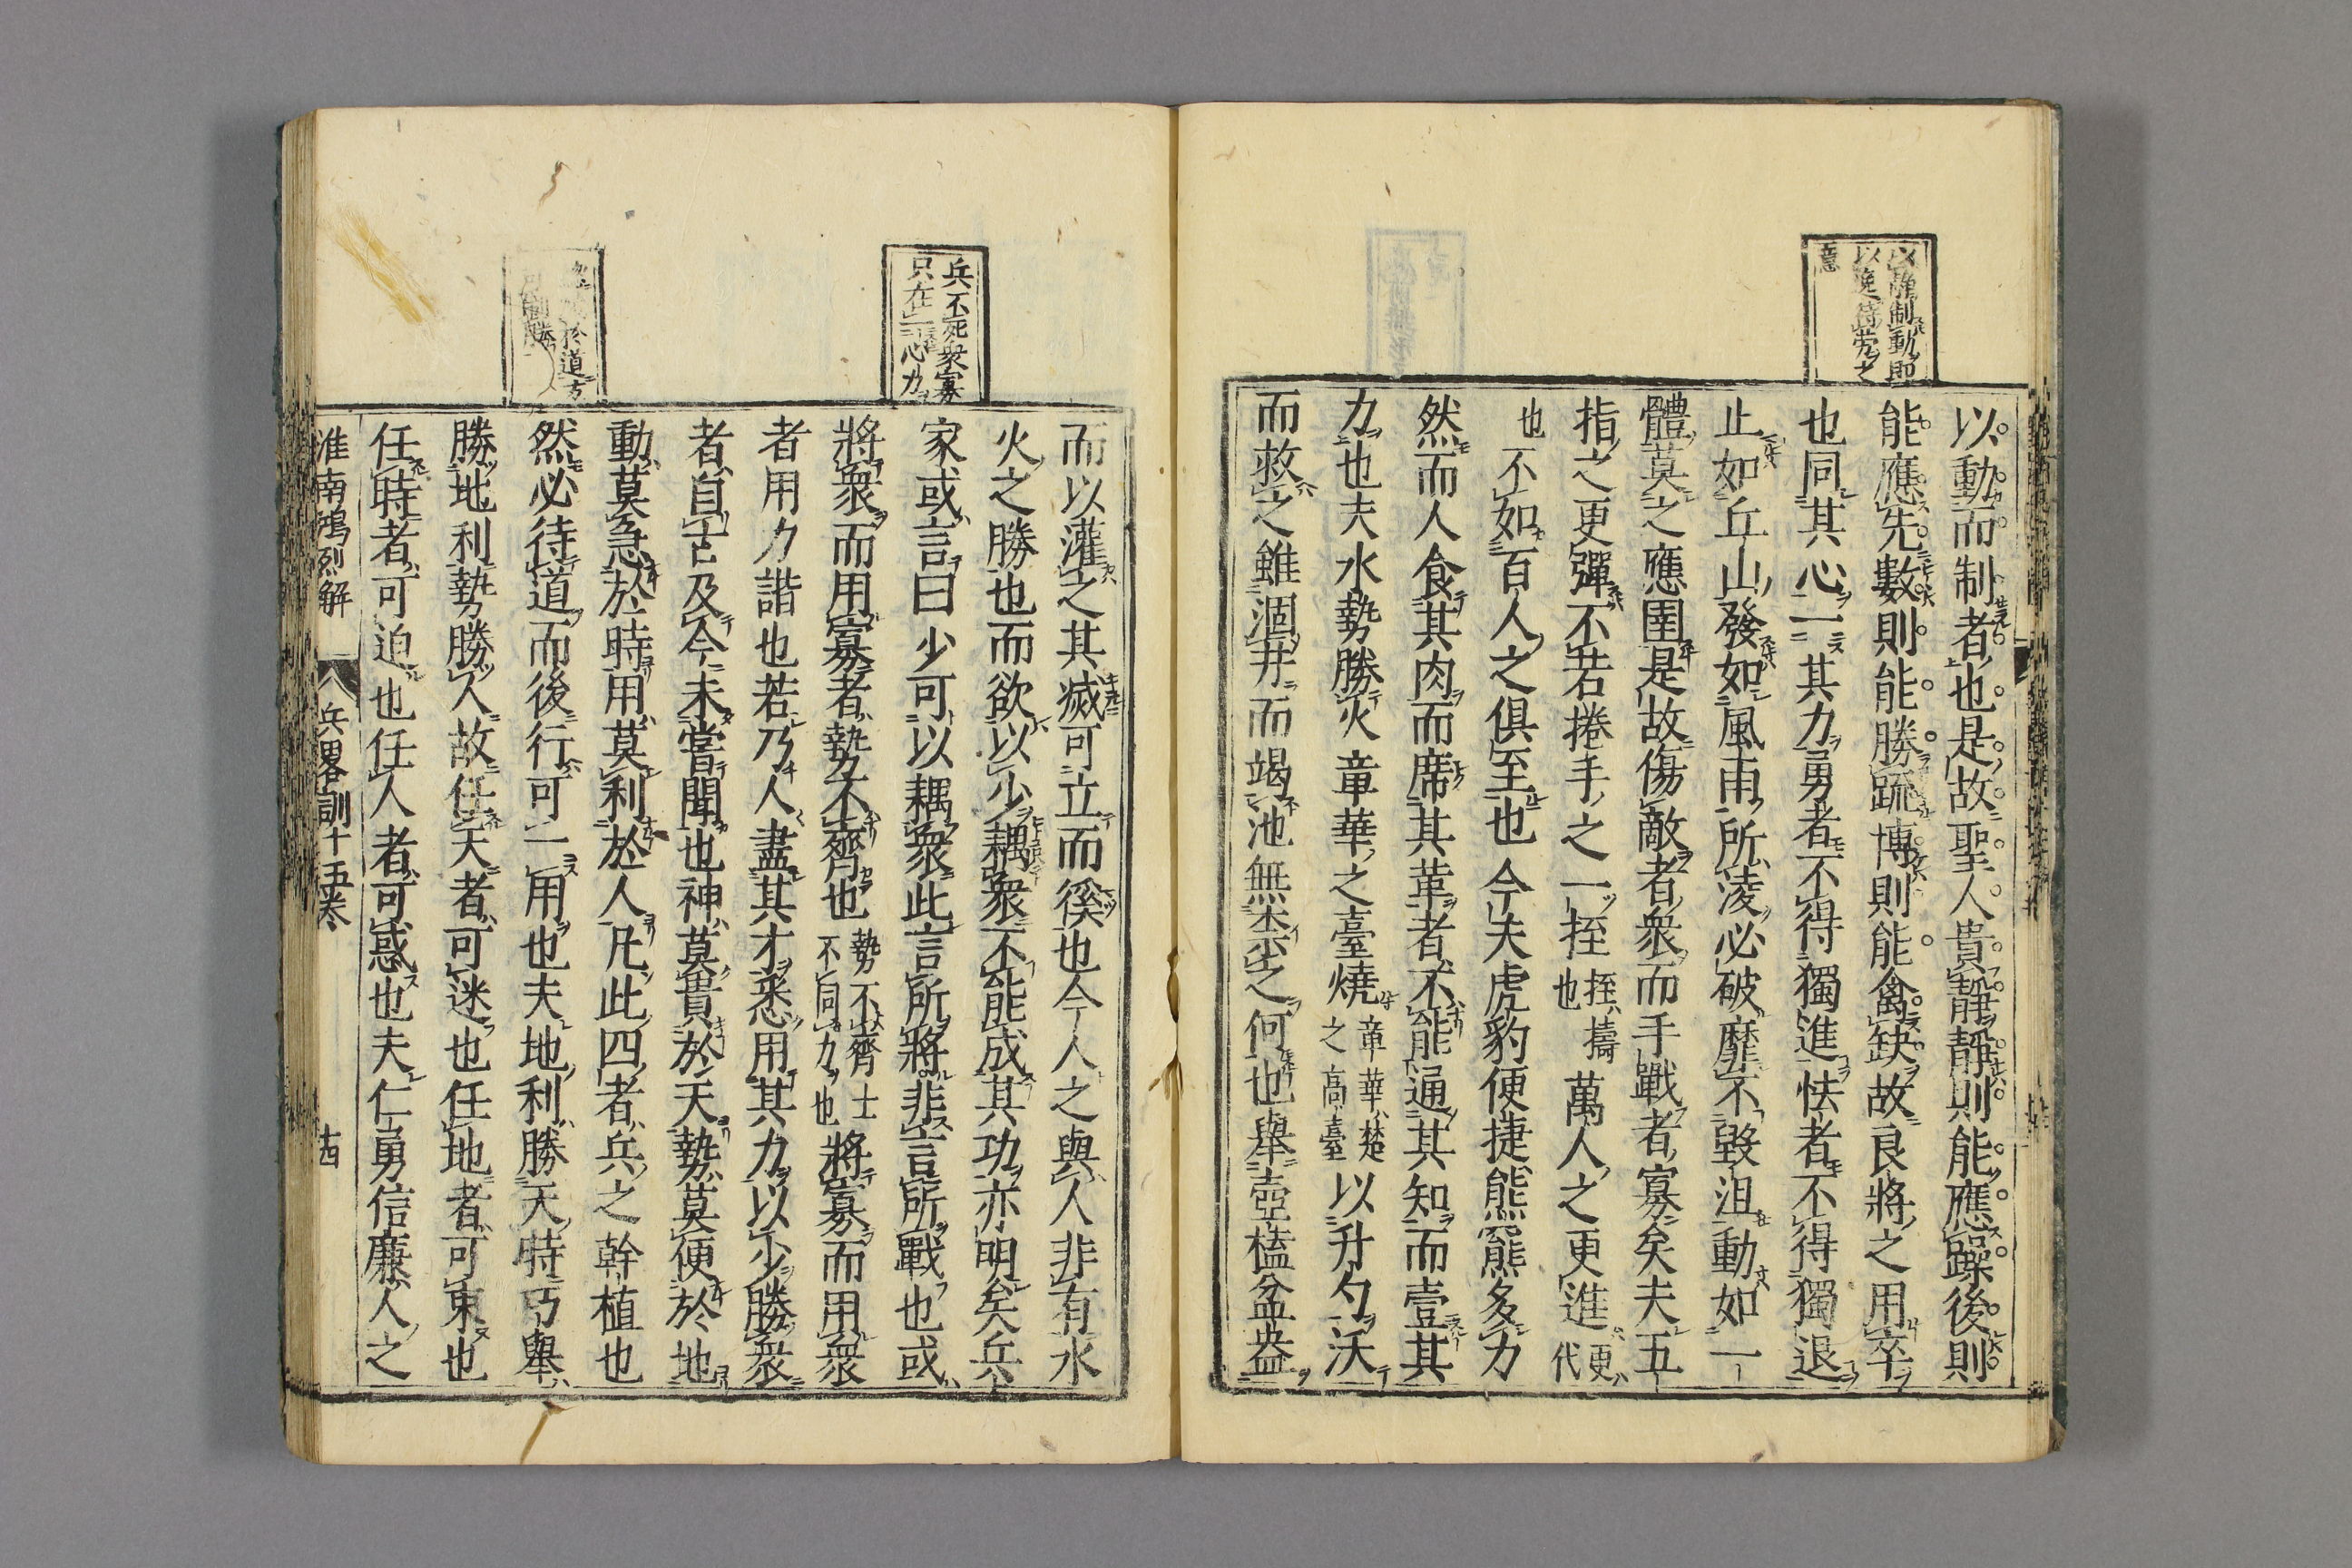 以靜制動即
以逸待勞之
意
以動而制者也是故聖人貴靜靜則能應躁後則
能應先數則能勝疏博則能禽缺故良將之用卒
也同其心一其力勇者不得獨進怯者不得獨退
止如丘山發如風雨所淩必破靡不毀沮動如一
體莫之應圉是故傷敵者衆而手戰者寡矣夫五
指之更彈不若捲手之一挃挃擣也萬人之更進更代
也不如百人之俱至也今夫虎豹便捷熊羆多力
然而人食其肉而席其革者不能通其知而壹其
力也夫水勢勝火章華之臺燒章華楚之高臺以升勺沃
而救之雖涸井而竭池無柰之何也舉壺榼盆盎
兵不死衆寡
只在一心力
於道方
制勝
而以灌之其滅可立而徯也今人之與人非有水
火之勝也而欲以少耦衆不能成其功亦明矣兵
家或言曰少可以耦衆此言所將非言所戰也或
將衆而用寡者勢不齊也勢不齊士不同力也將寡而用衆
者用力諧也若乃人盡其才悉用其力以少勝衆
者自古及今未嘗聞也神莫貴於天勢莫便於地
動莫急於時用莫利於人凡此四者兵之幹植也
然必待道而後行可一用也夫地利勝天時巧舉
勝地利勢勝人故任天者可迷也任地者可東也
任時者可迫也任人者可惑也夫仁勇信廉人之
淮南鴻烈解 兵畧訓十五卷 十四